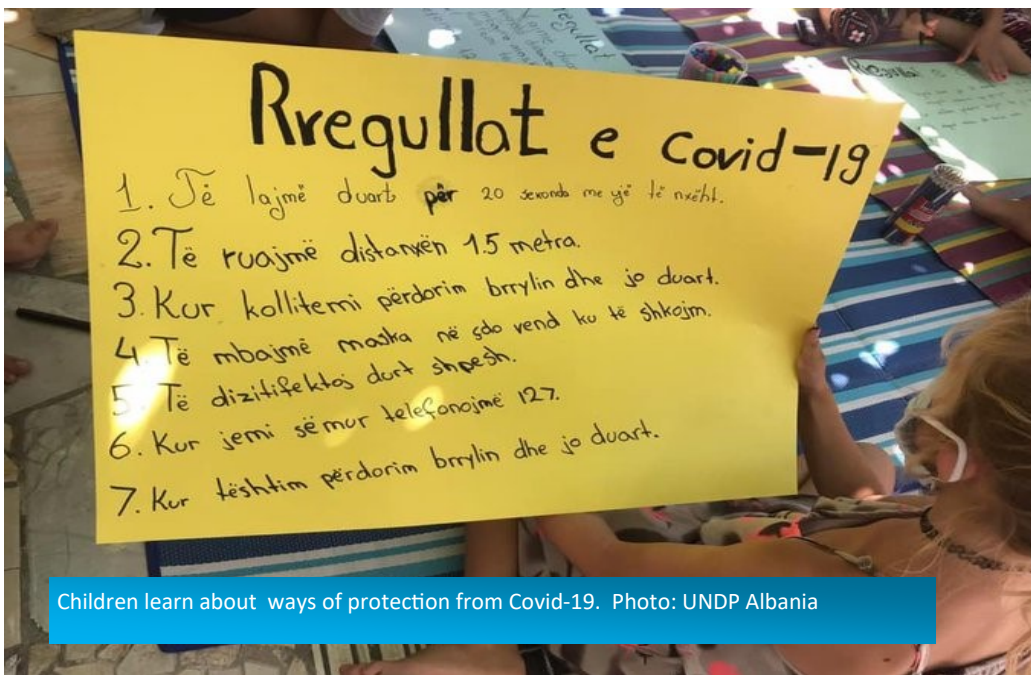 Rregullat e Covid-19
1. Të lajmë duart për 20 sekonda me ujë të nxeht.
2. Të ruajmë distanxën 1.5 metra.
3. Kur kollitemi përdorim brrylin dhe jo duart.
4. Të mbajmë maska në çdo vend ku të shkojm.
5. Të dizitifektoj durt shpesh.
6. Kur jemi sëmur telefonojmë 127.
7. Kur tështim përdorim brrylin dhe jo duart.
Rregullat
Rregullat e
Children learn about ways of protection from Covid-19. Photo: UNDP Albania